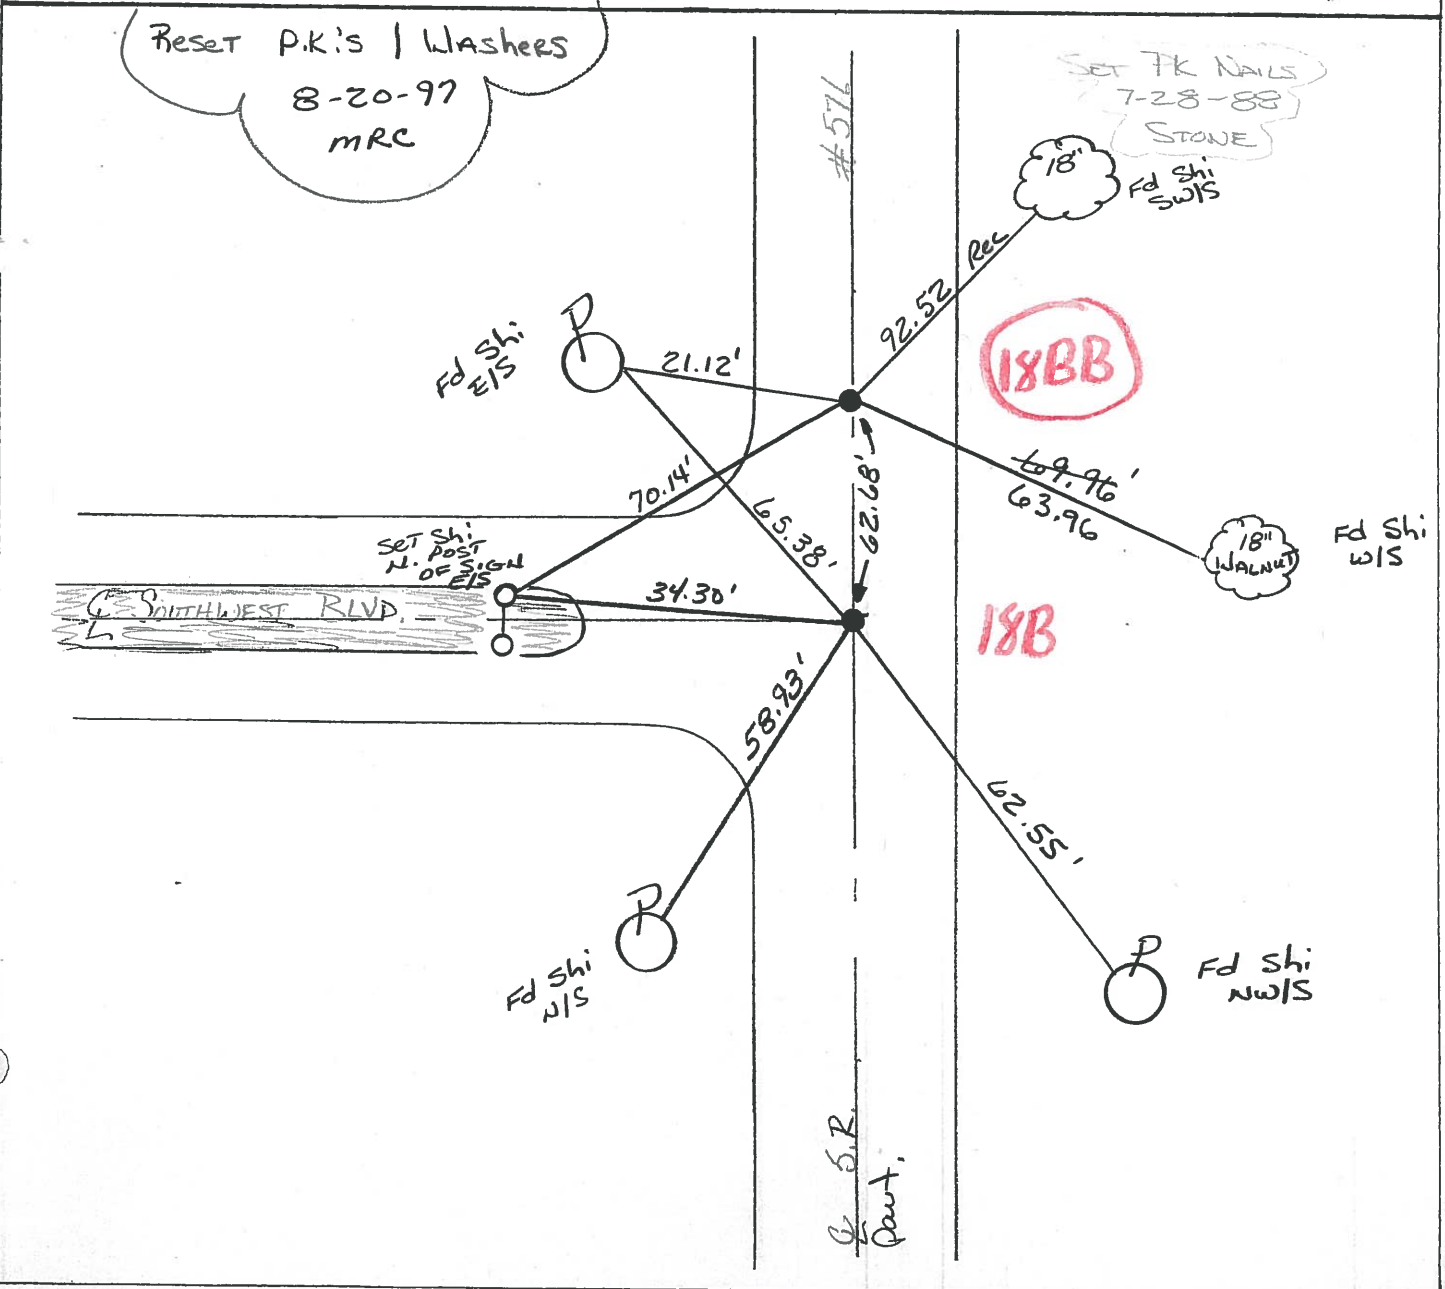 Reset P.K.'s / Washers
8-20-97
MRC
Set PK Nails
7-28-88
Stone
#571
18"
Fd Shi
SW/S
92.52 Rec
P
Fd Shi
E/S
21.12'
18BB
70.14'
65.38'
62.68'
69.96'
63.96
18"
Walnut
Fd Shi
W/S
Set Shi
N. Post
of Sign
E/S
℄ Southwest Blvd.
34.30'
18B
58.93'
62.55'
P
Fd Shi
N/S
P
Fd Shi
NW/S
℄ S.R.
Pavt.